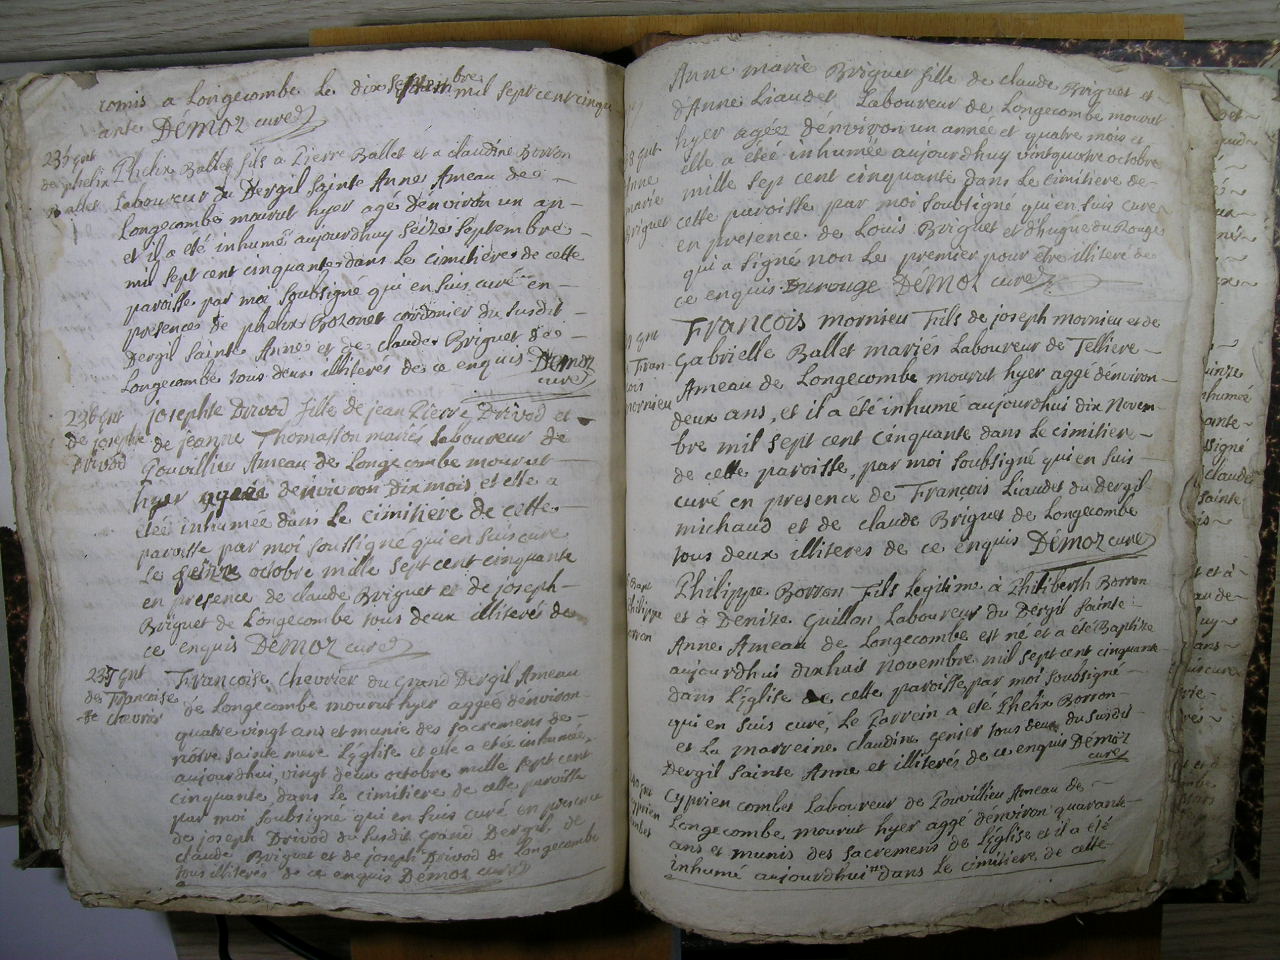 romis a Longecombe le dix septembre mil sept cent cinqu
ante Démoz curé
235 gnt
de phelix
Ballet
Phelix Ballet fils a Pierre Ballet et a claudine Borron
Laboureur du Dergil Sainte Anne Ameau de
Longecombe mourut hyer agé dénviron un an
et il a été inhumé aujourdhuy séize Septembre
mil sept cent cinquante dans Le cimitiere de cette
paroisse par moi soubsigné qui en suis curé en
presence de phelix Bozonet cordonier du susdit
Dergil Sainte Anne et de claude Briguet de
Longecombe tous deux illiterés de ce enquis Démoz
curé
236 gnt
de josephe
Drivod
josephte Drivod fille de jean Pierre Drivod et
de jeanne Thomasson mariés Laboureur de
Pouvillieu Ameau de Longecombe mourut
hyer agée denviron dix mois et elle a
étéé inhumée dans Le cimitiere de cette
paroisse par moi soussigné qui en suis curé
Le seize octobre mille sept cent cinquante
en presence de claude Briguet et de joseph
Briguet de Longecombe tous deux illiterés de
ce enquis Démoz curé
237 gnt
de Francoise
chevrier
Francoise chevrier du Grand Dergil Ameau
de Longecombe mourut hyer aggéé dénviron
quatre vingt ans et munie des sacremens de
nôtre sainte mere L'église et elle a étéé inhumée
aujourdhui vingt deux octobre mille sept cent
cinquante dans Le cimitiere de cette paroisse
par moi soubsigné qui en suis curé en presence
de joseph Drivod du susdit Grand Dergil, de
claude Briguet et de joseph Drivod de Longecombe
tous illiterés de ce enquis Démoz curé
8 gnt
Anne
marie
Briguet
Anne marie Briguet fille de claude Briguet et
d'Anne Liaudet Laboureur de Longecombe mourut
hyer agéé dénviron un année et quatre mois et
elle a étéé inhumée aujourdhuy vintquatre octobre
mille sept cent cinquante dans Le cimitiere de
cette paroisse par moi soubsigné qui en suis curé
en presence de Louis Briguet et d'hugue du Rouge
qui a signé non le premier pour etre illiteré de
ce enquis Durouge Démoz curé
gnt
Fran
cois
mornieu
François mornieu Fils de joseph mornieu et de
Gabrielle Ballet mariés Laboureur de Telliere
Ameau de Longecombe mourut hyer aggé dénviron
deux ans, et il a été inhumé aujourdhui dix Novem
bre mil sept cent cinquante dans Le cimitiere
de cette paroisse, par moi soubsigné qui en suis
curé en presence de François Liaudet du Dergil
michaud et de claude Briguet de Longecombe
tous deux illiteres de ce enquis Démoz curé
Bap
Philippe
Borron
Philippe Borron Fils Legitime à Philiberth Borron
et à Denize Guillon Laboureur du Dergil Sainte
Anne Ameau de Longecombe est né et a été Baptize
aujourdhui dixhuit novembre mil sept cent cinquante
dans L'église de cette paroisse par moi soubsigné
qui en suis curé, Le Parrein a été Phelix Borron
et La marreine claudine Genier tous deux du susdit
Dergil Sainte Anne et illiterés de ce enquis Démoz
curé
40 gnt
Cyprien
combet
Cyprien combet Laboureur de Pouvillieu Ameau de
Longecombe, mourut hyer aggé dénviron quarante
ans et munis des sacremens de L'église et il a été
inhumé aujourdhui dans Le cimitiere de cette